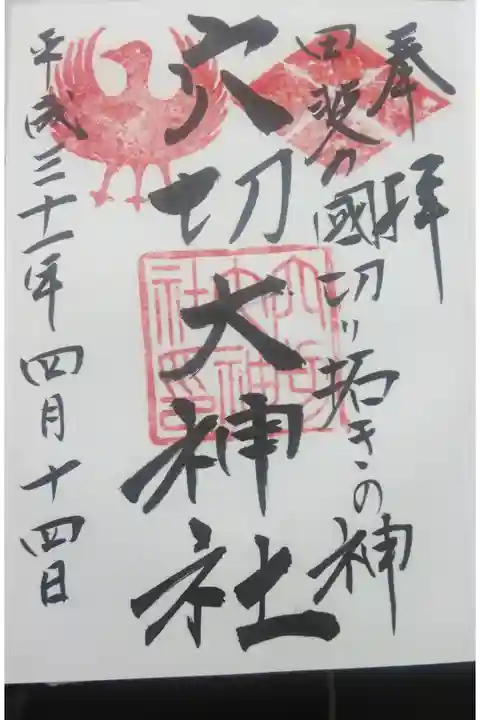 奉拝
甲斐の國切り拓きの神
穴切大神社
平成三十一年四月十四日
穴切
大神
社印